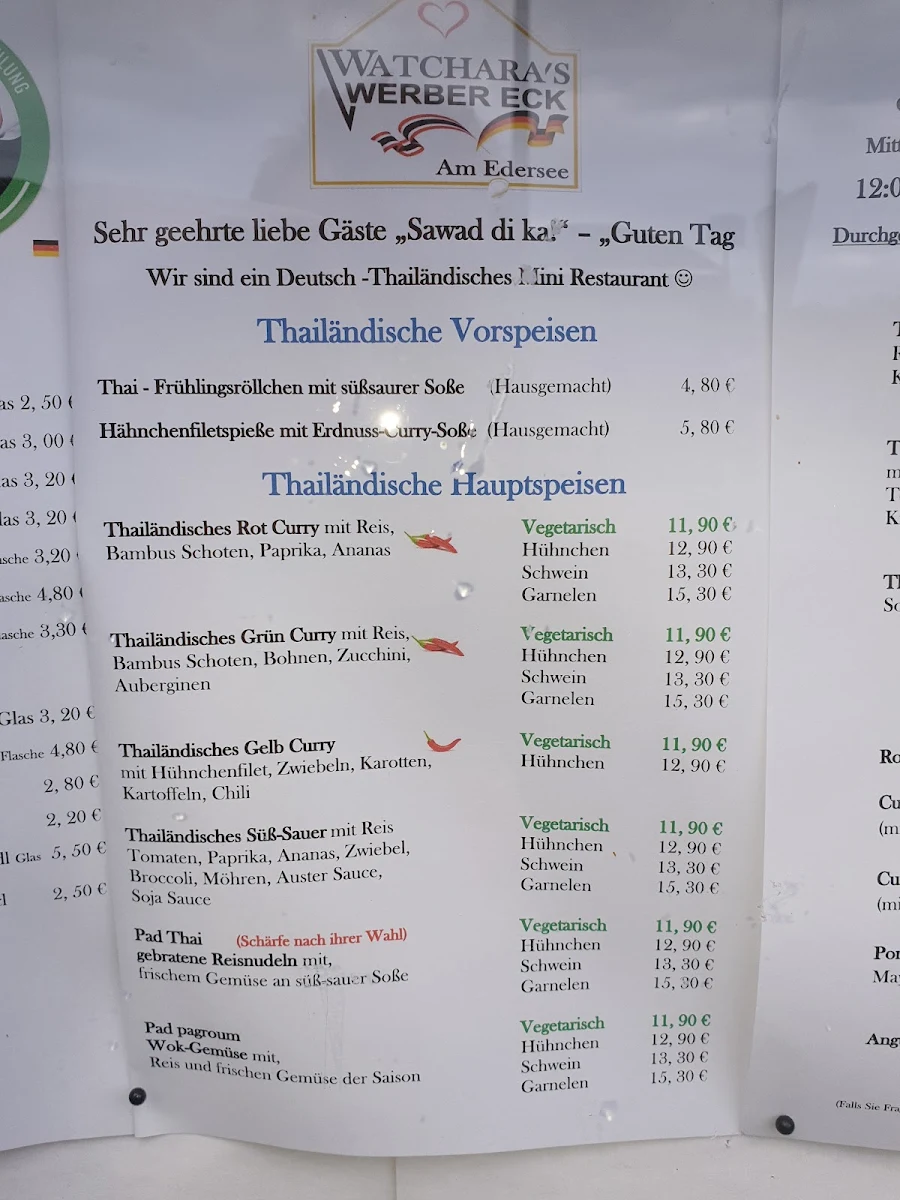 WATCHARA'S
WERBER ECK
Am Edersee
Sehr geehrte liebe Gäste „Sawad di ka!“ – „Guten Tag
Wir sind ein Deutsch -Thailändisches Mini Restaurant ☺
Thailändische Vorspeisen
Thai - Frühlingsröllchen mit süßsaurer Soße (Hausgemacht) 4, 80 €
Hähnchenfiletspieße mit Erdnuss-Curry-Soße (Hausgemacht) 5, 80 €
Thailändische Hauptspeisen
Thailändisches Rot Curry mit Reis, Vegetarisch 11, 90 €
Bambus Schoten, Paprika, Ananas Hühnchen 12, 90 €
Schwein 13, 30 €
Garnelen 15, 30 €
Thailändisches Grün Curry mit Reis, Vegetarisch 11, 90 €
Bambus Schoten, Bohnen, Zucchini, Hühnchen 12, 90 €
Auberginen Schwein 13, 30 €
Garnelen 15, 30 €
Thailändisches Gelb Curry Vegetarisch 11, 90 €
mit Hühnchenfilet, Zwiebeln, Karotten, Hühnchen 12, 90 €
Kartoffeln, Chili
Thailändisches Süß-Sauer mit Reis Vegetarisch 11, 90 €
Tomaten, Paprika, Ananas, Zwiebel, Hühnchen 12, 90 €
Broccoli, Möhren, Auster Sauce, Schwein 13, 30 €
Soja Sauce Garnelen 15, 30 €
Pad Thai (Schärfe nach ihrer Wahl) Vegetarisch 11, 90 €
gebratene Reisnudeln mit, Hühnchen 12, 90 €
frischem Gemüse an süß-sauer Soße Schwein 13, 30 €
Garnelen 15, 30 €
Pad pagroum Vegetarisch 11, 90 €
Wok-Gemüse mit, Hühnchen 12, 90 €
Reis und frischen Gemüse der Saison Schwein 13, 30 €
Garnelen 15, 30 €
2, 50 €
3, 00 €
3, 20
3, 20
3,20
4,80
3,30 €
Glas 3, 20 €
Flasche 4,80 €
2, 80 €
2, 20 €
Glas 5, 50 €
2, 50 €
12:0
(Falls Sie